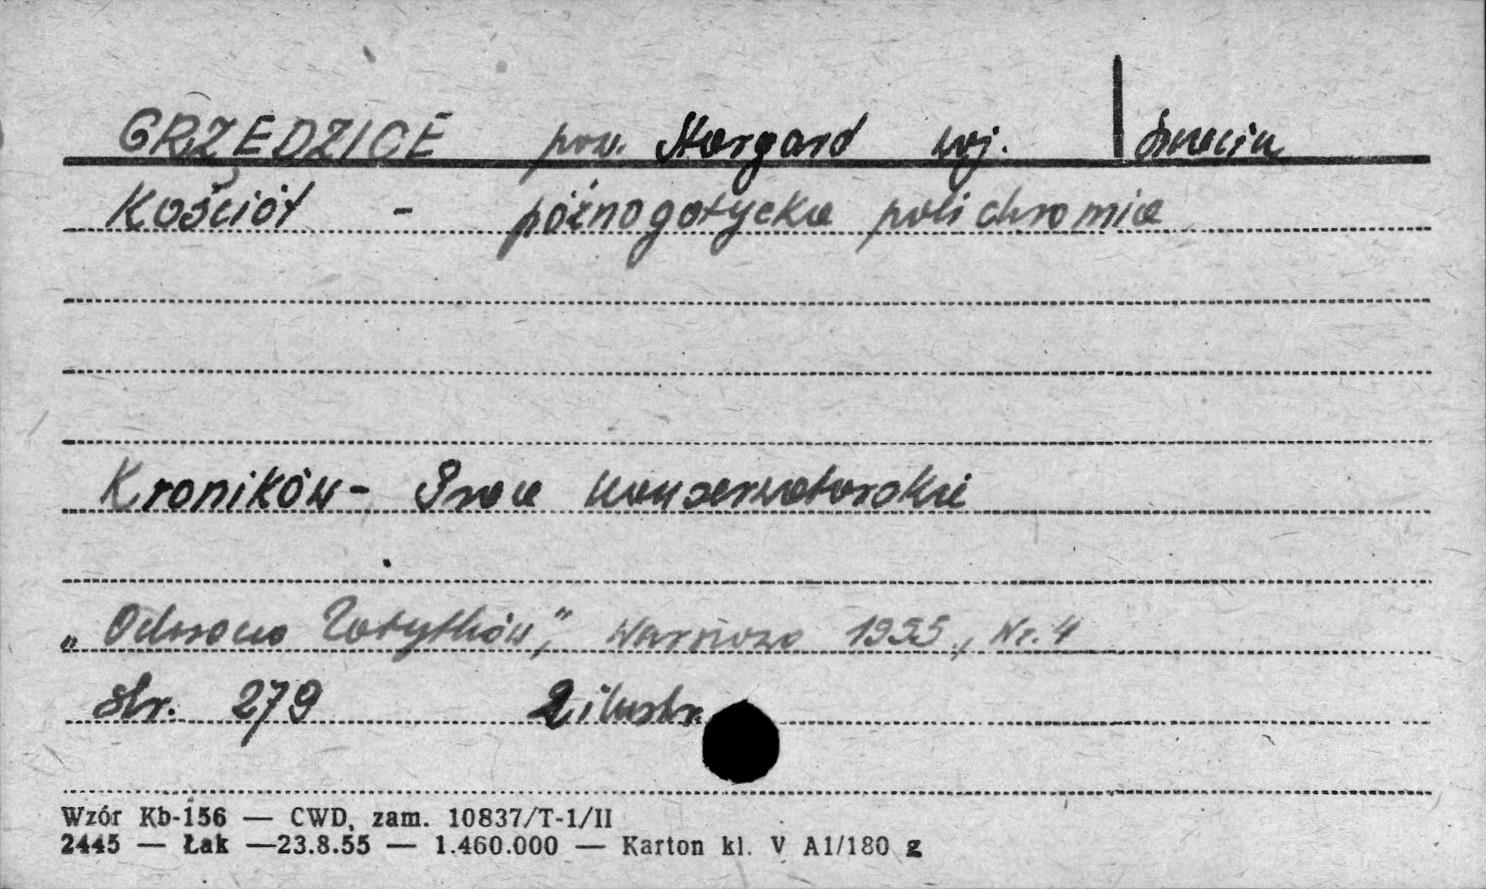 GRZĘDZICE pow. Stargard woj. Szczecin
Kościół - późnogotycka polichromia
Kroników - Prace konserwatorskie
„Ochrona Zabytków”, Warszawa 1955, Nr. 4
str. 279 2 ilustr.
Wzór Kb-156 — CWD, zam. 10837/T-1/II
2445 — Łak —23.8.55 — 1.460.000 — Karton kl. V A1/180 g